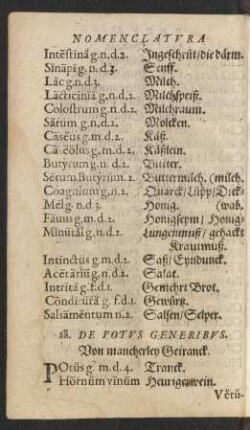 NOMENCLATVRA
Intēstinā g.n.d.2. Jngeschnit/die därm.
Sĭnāpi g.n.d.3. Senff.
Lāc g.n.d.3. Milch.
Lācticiniā g.n.d.2. Milchspeiß.
Colostrum g.n.d.2. Milchraum.
Sărum g.n.d.2. Molcken.
Cāsĕus g.m.d.2. Käß.
Cāsĕŏlus g.m.d.2. Käßlein.
Butȳrum g.n.d.2. Butter.
Sĕrum Butȳrum 2. Buttermilch. (milch.
Coagulum g.n.2. Quarck/Lüpp/Dick-
Mĕl g.n.d.3. Honig. (wab.
Făuus g.m.d.2. Honigseym/ Honig-
Mĭnūtăl g.n.d.2. Lungenmuß/ gehackt
Krautmuß.
Intinctus g.m.d.2. Saß/ Eyndunck.
Acētāriū g.n.d.2. Salat.
Intritā g.f.d.1. Gemehrt Brot.
Condītūră g.f.d.1. Gewürtz.
Salsāmēntum n.2. Salsen/Selper.
18. DE POTVS GENERIBVS.
Von mancherley Getranck.
POtŭs g.m.d.4. Tranck.
Hōrnŭm vīnŭm Heurigerwein.
Vĕtŭ-